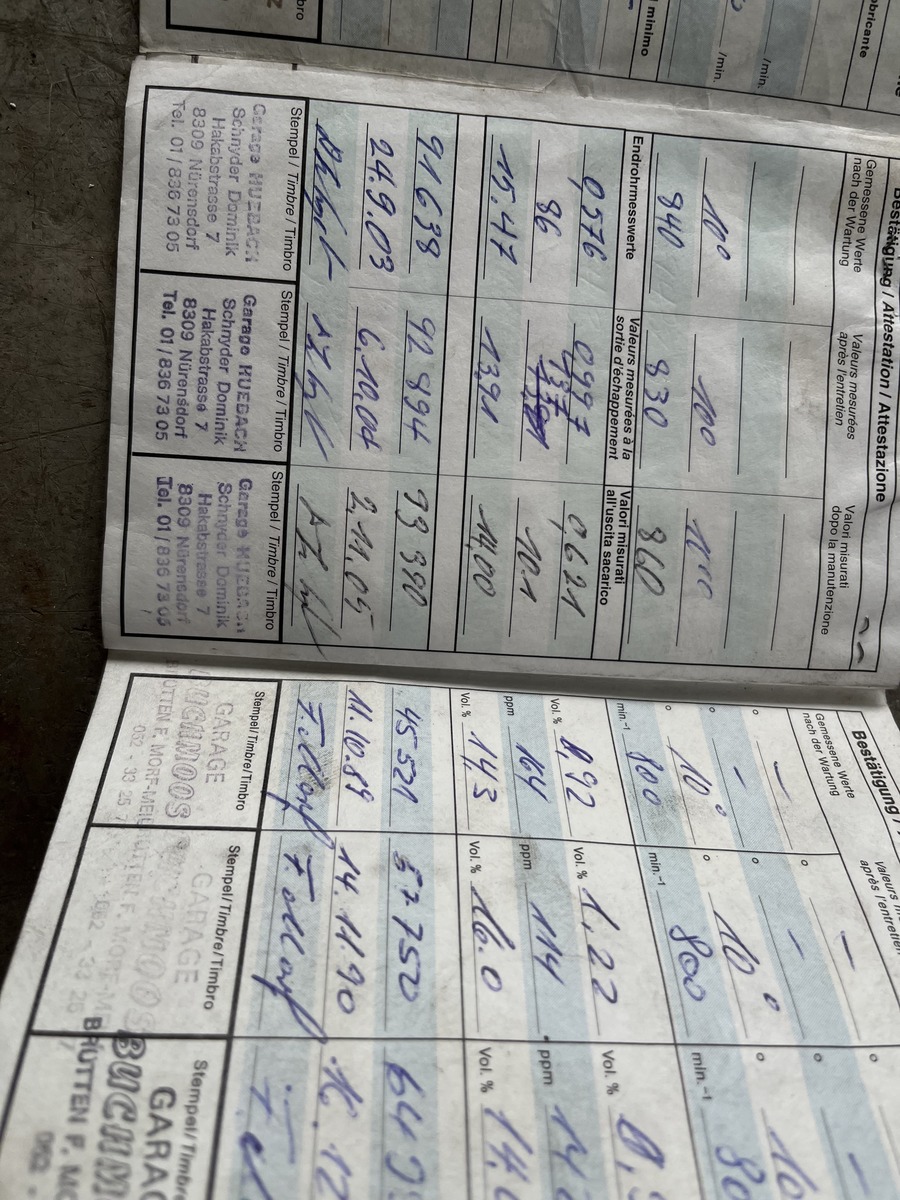 bricante
/min.
/min.
l minimo
bro
Bestätigung / Attestation / Attestazione
Gemessene Werte
nach der Wartung
Valeurs mesurées
après l'entretien
Valori misurati
dopo la manutenzione
10° 100
840 830 860
Endrohrmesswerte
Valeurs mesurées à la
sortie d'échappement
Valori misurati
all'uscita sacarico
0,576 0,997 0,621
86 101
15.47 13,91 14,00
91638 92894 93390
24.9.03 6.10.04 2.11.05
Stempel / Timbre / Timbro
Garage RUEBACH
Schnyder Dominik
Hakabstrasse 7
8309 Nürensdorf
Tel. 01/836 73 05
Stempel / Timbre / Timbro
Garage RUEBACH
Schnyder Dominik
Hakabstrasse 7
8309 Nürensdorf
Tel. 01/836 73 05
Stempel / Timbre / Timbro
Garage RUEBACH
Schnyder Dominik
Hakabstrasse 7
8309 Nürensdorf
Tel. 01/836 73 05
Bestätigung /
Gemessene Werte
nach der Wartung
après l'entretien
° – ° – °
° – ° – ° –
° 10° ° 10° ° 10
min.⁻¹ 800 min.⁻¹ 800 min.⁻¹ 80
Vol. % 0,92 Vol. % 1,22 Vol. % 0,
ppm 164 ppm 114 ppm 14
Vol. % 14,3 Vol. % 16.0 Vol. % 14,
45521 57750
11.10.89 14.11.90
Stempel/Timbre/Timbro
GARAGE
BUCHMOOS
BRÜTTEN F. MORF-MEIL
052 - 33 25
Stempel/Timbre/Timbro
GARAGE
Stempel/Timbre/Timbro
GARA
BUCHM
BRÜTTEN F. MO
052